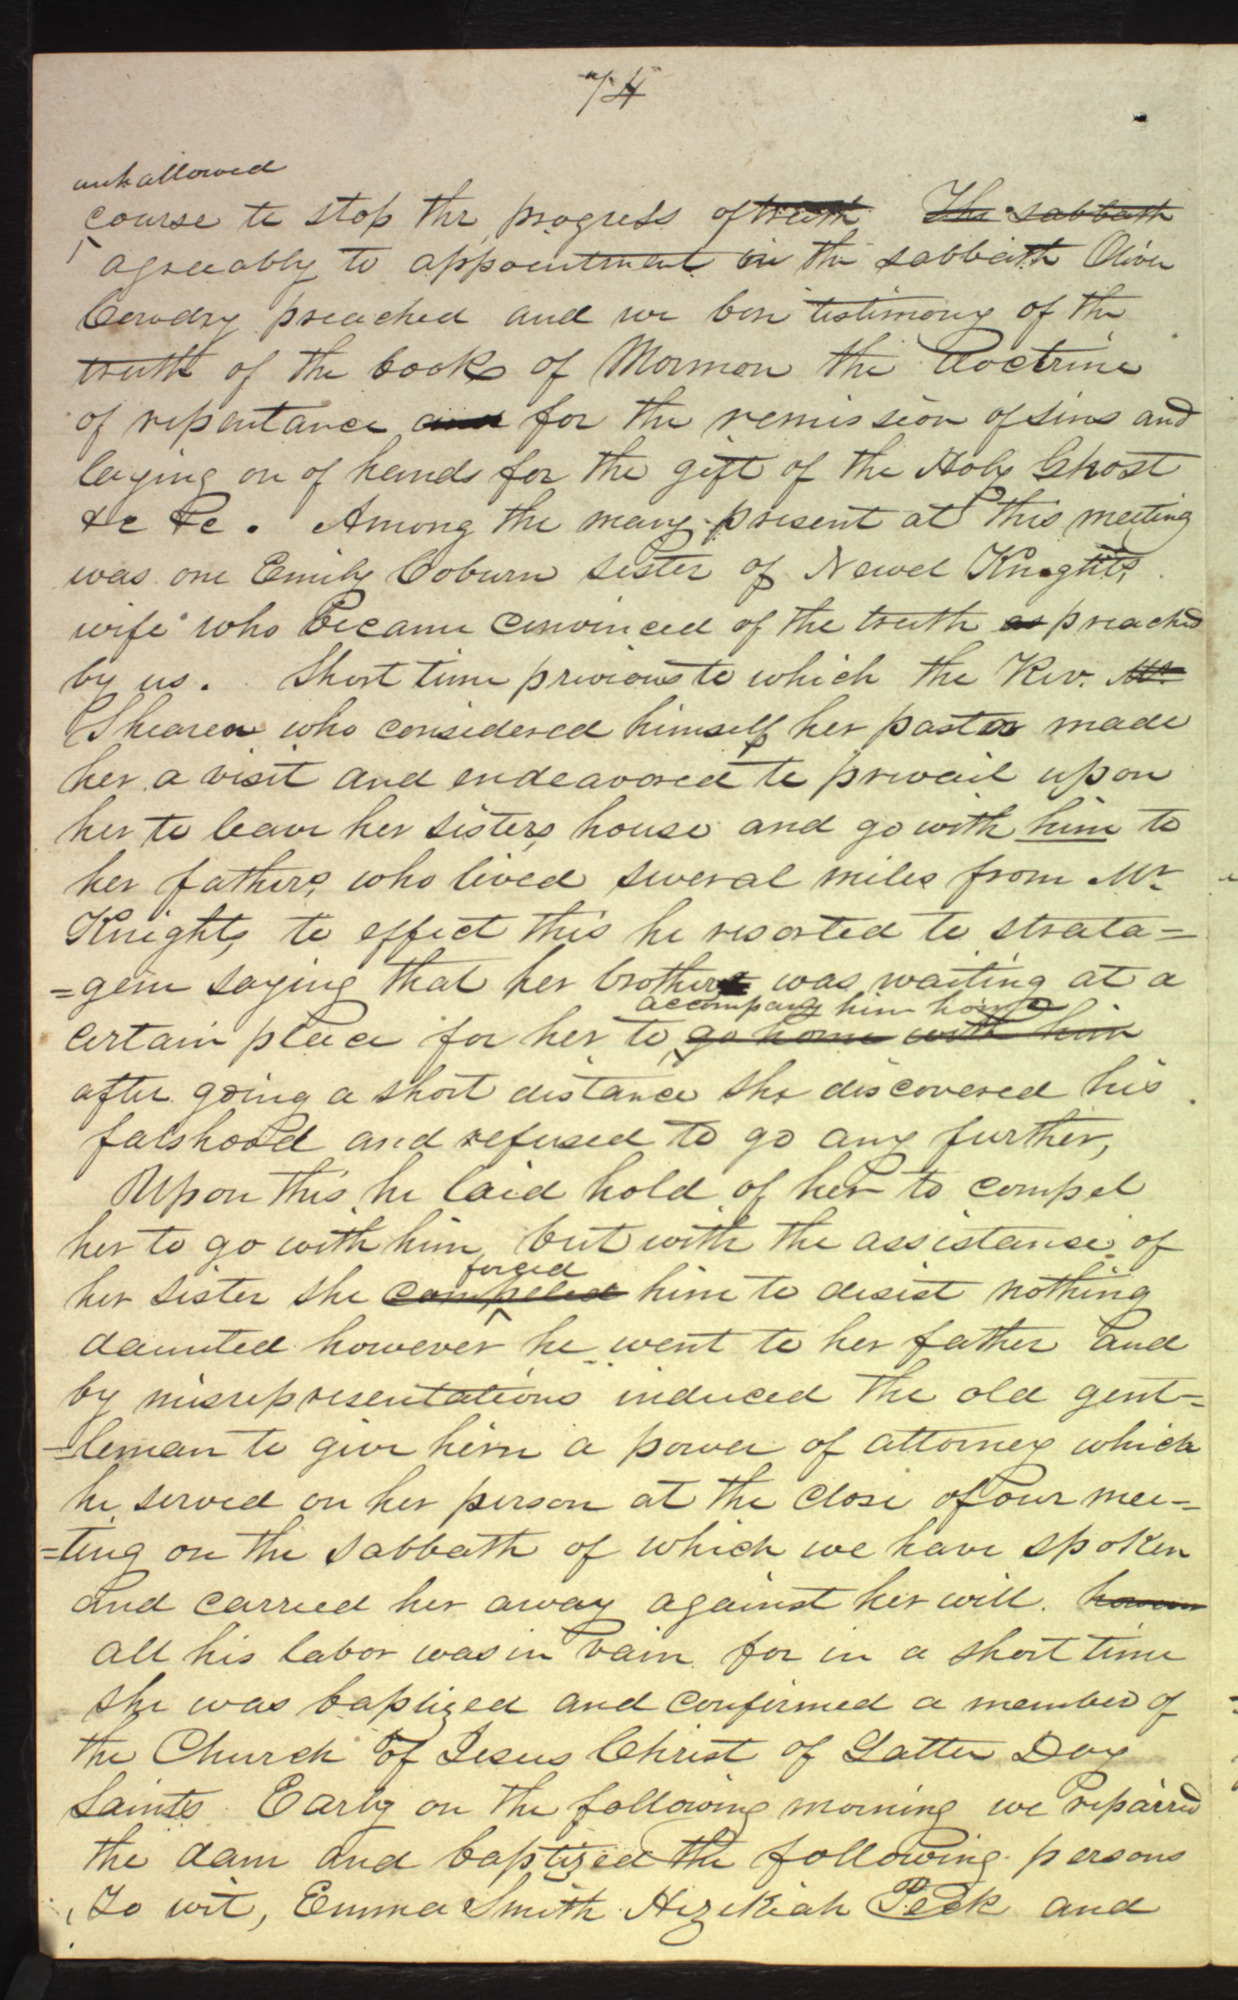 74
unhallowed
course to stop the progress of truth The sabbath
agreeably to appointment on the sabbath Oliver
Cowdry preached and we bore testimony of the
truth of the book of Mormon the doctrine
of repentance and for the remission of sins and
laying on of hands for the gift of the Holy Ghost
&c &c. Among the many present at this meeting
was one Emily Coburn sister of Newel Knights
wife who became convinced of the truth as preached
by us. Short time previous to which the Rev. Mr.
Shearer who considered himself her pastor made
her a visit and endeavored to prevail upon
her to leave her sisters house and go with him to
her fathers, who lived several miles from Mr
Knights, to effect this he resorted to strata=
=gem saying that her brother was waiting at a
accompany him home
certain place for her to go home with him
after going a short distance she discovered his
falshood and refused to go any further,
Upon this he laid hold of her to compel
her to go with him, but with the assistance of
forced
her sister she compeled him to desist nothing
daunted however he went to her father and
by misrepresentations induced the old gent=
=leman to give him a power of attorney which
he served on her person at the close of our mee=
=ting on the sabbath of which we have spoken
and carried her away against her will. however
all his labor was in vain for in a short time
she was baptized and confirmed a member of
the Church of Jesus Christ of Latter Day
Saints Early on the following morning we repaired
the dam and baptized the following persons
To wit, Emma Smith Hezekiah Peck and